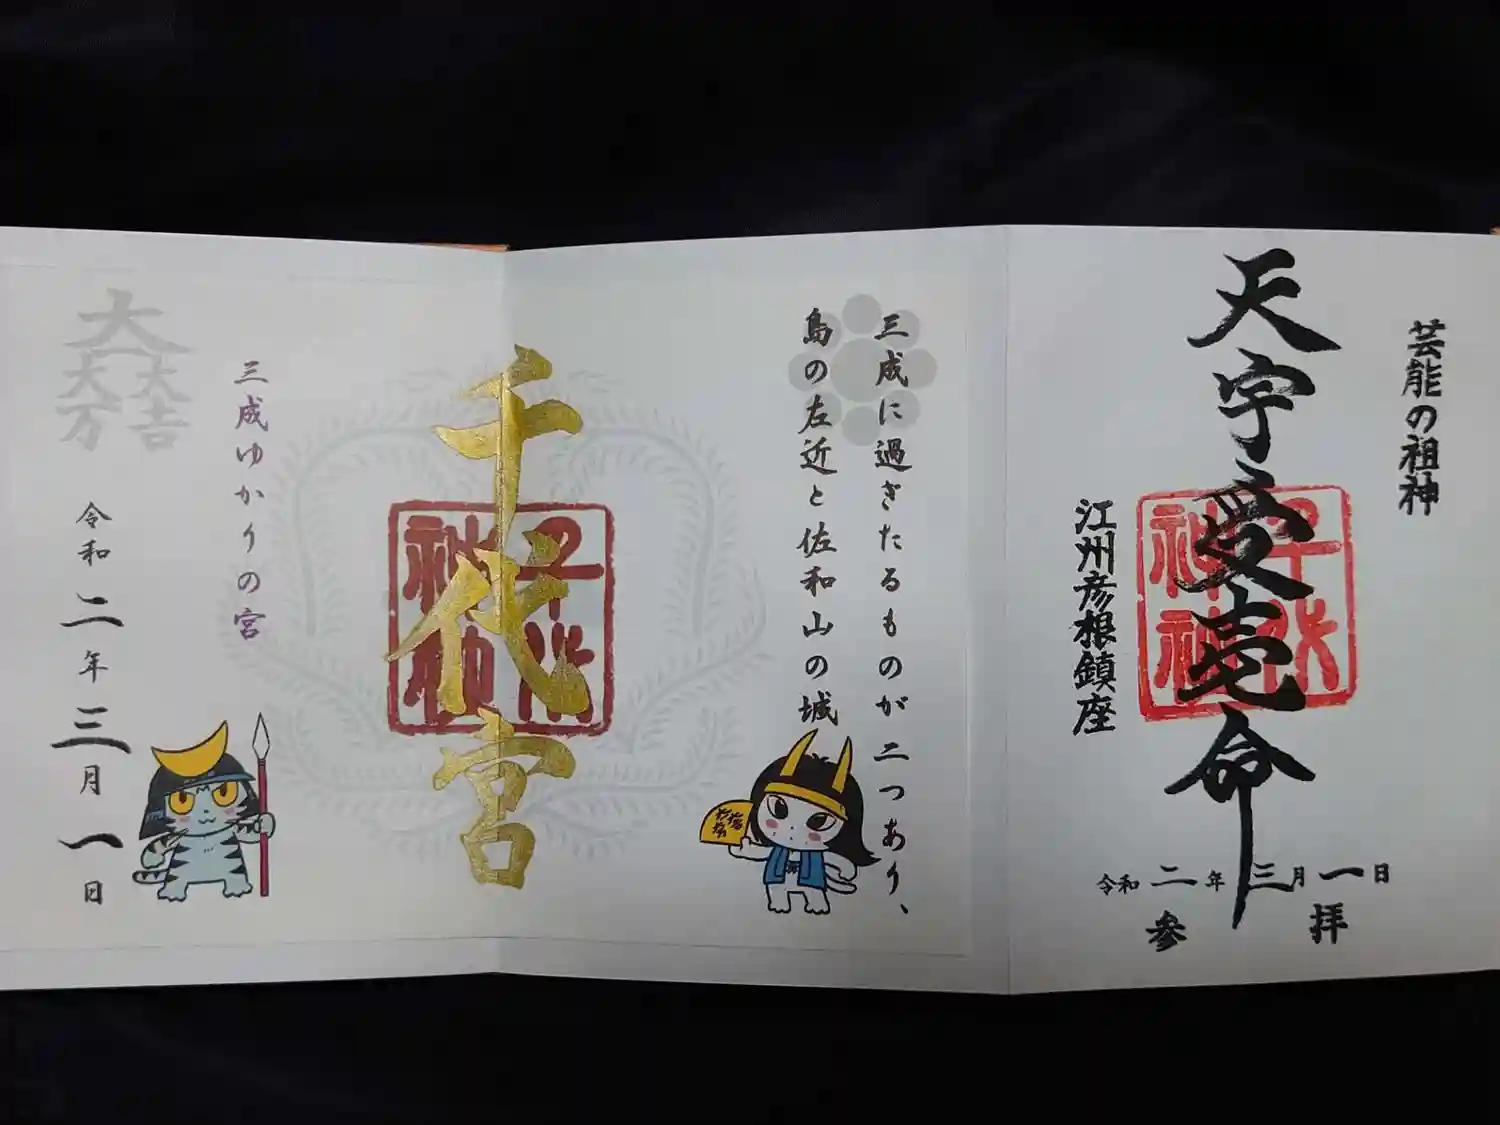 芸能の祖神
天宇受売命
千代神社
江州彦根鎮座
令和二年三月一日
参拝
三成に過ぎたるものが二つあり、
島の左近と佐和山の城
千代宮
千代神社
三成ゆかりの宮
大一大万大吉
令和二年三月一日